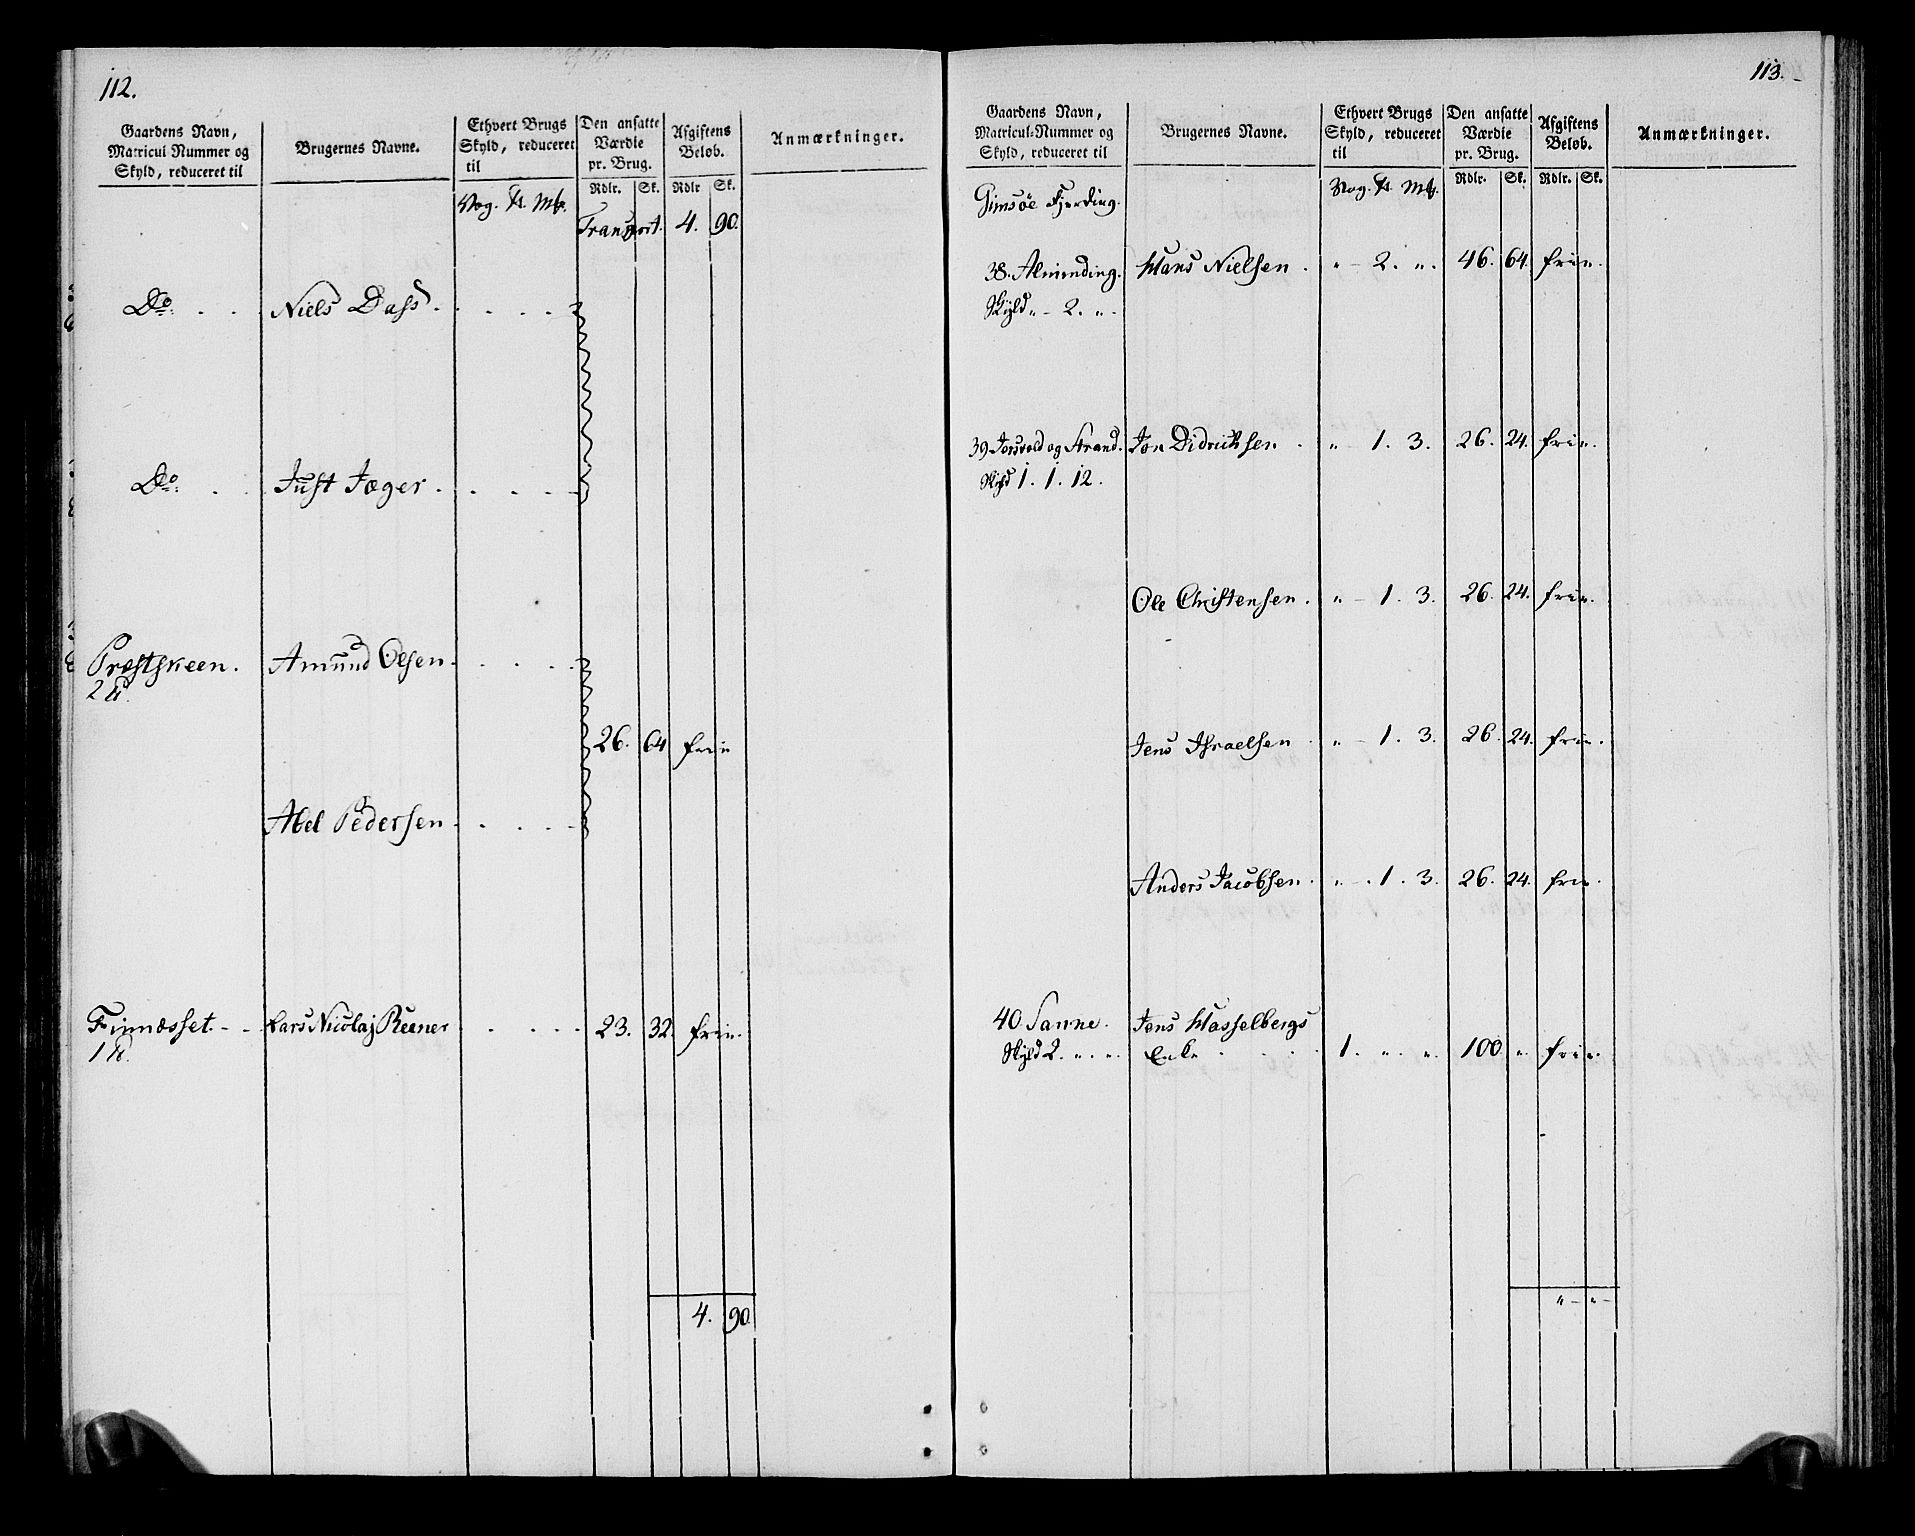 112.
Gaardens Navn, Matricul Nummer og Skyld, reduceret til
Brugernes Navne.
Ethvert Brugs Skyld, reduceret til
Den ansatte Værdie pr. Brug.
Afgiftens Beløb.
Anmærkninger.
Rdlr. Sk. Rdlr Sk.
Vog. ℔. Mk.
Transport. 4. 90.
Do. . . Niels Dass . . . . .
Do. . . Just Jæger . . . . .
Præstsneen. Amund Olsen . . . .
2 ℔.
26. 64 frie
Abel Pedersen . . . .
Finnæsset. - - Lars Nicolaj Reener . . . . 23. 32. frie.
1 ℔.
4. 90.
113.
Gaardens Navn, Matricul-Nummer og Skyld, reduceret til
Brugernes Navne.
Ethvert Brugs Skyld, reduceret til
Den ansatte Værdie pr. Brug.
Afgiftens Beløb.
Anmærkninger.
Rdlr. Sk. Rdlr. Sk.
Gimsöe Fjerding.
Vog. ℔. Mk.
38. Almending. Hans Nielsen . " - 2. ". 46. 64. frie.
Skyld " - 2. ".
39 Jorsvold og Strand. Jon Didriksen . " - 1. 3. 26. 24. frie.
Skyld 1. 1. 12.
Ole Christensen. " - 1. 3. 26. 24. frie.
Jens Israelsen . " - 1. 3. 26. 24. frie.
Anders Jacobsen. " - 1. 3. 26. 24. frie.
40. Sanne. Jens Hasselbergs
Skyld 2. ". ". Enke . . . 1. ". ". 100. " frie.
" - " -